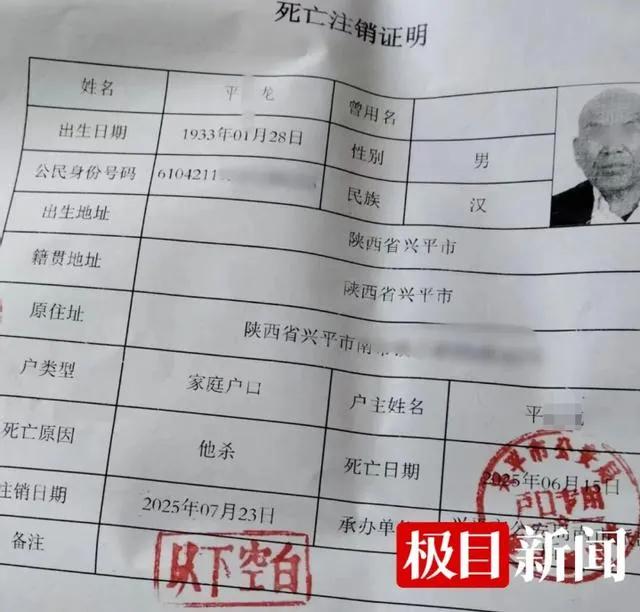 死亡注销证明
姓名 平 龙 曾用名
出生日期 1933年01月28日 性别 男
公民身份号码 6104211 民族 汉
出生地址 陕西省兴平市
籍贯地址 陕西省兴平市
原住址 陕西省兴平市南
户类型 家庭户口 户主姓名 平
死亡原因 他杀 死亡日期 2025年06月15日
注销日期 2025年07月23日 承办单
备注
以下空白
户口专用
极目新闻